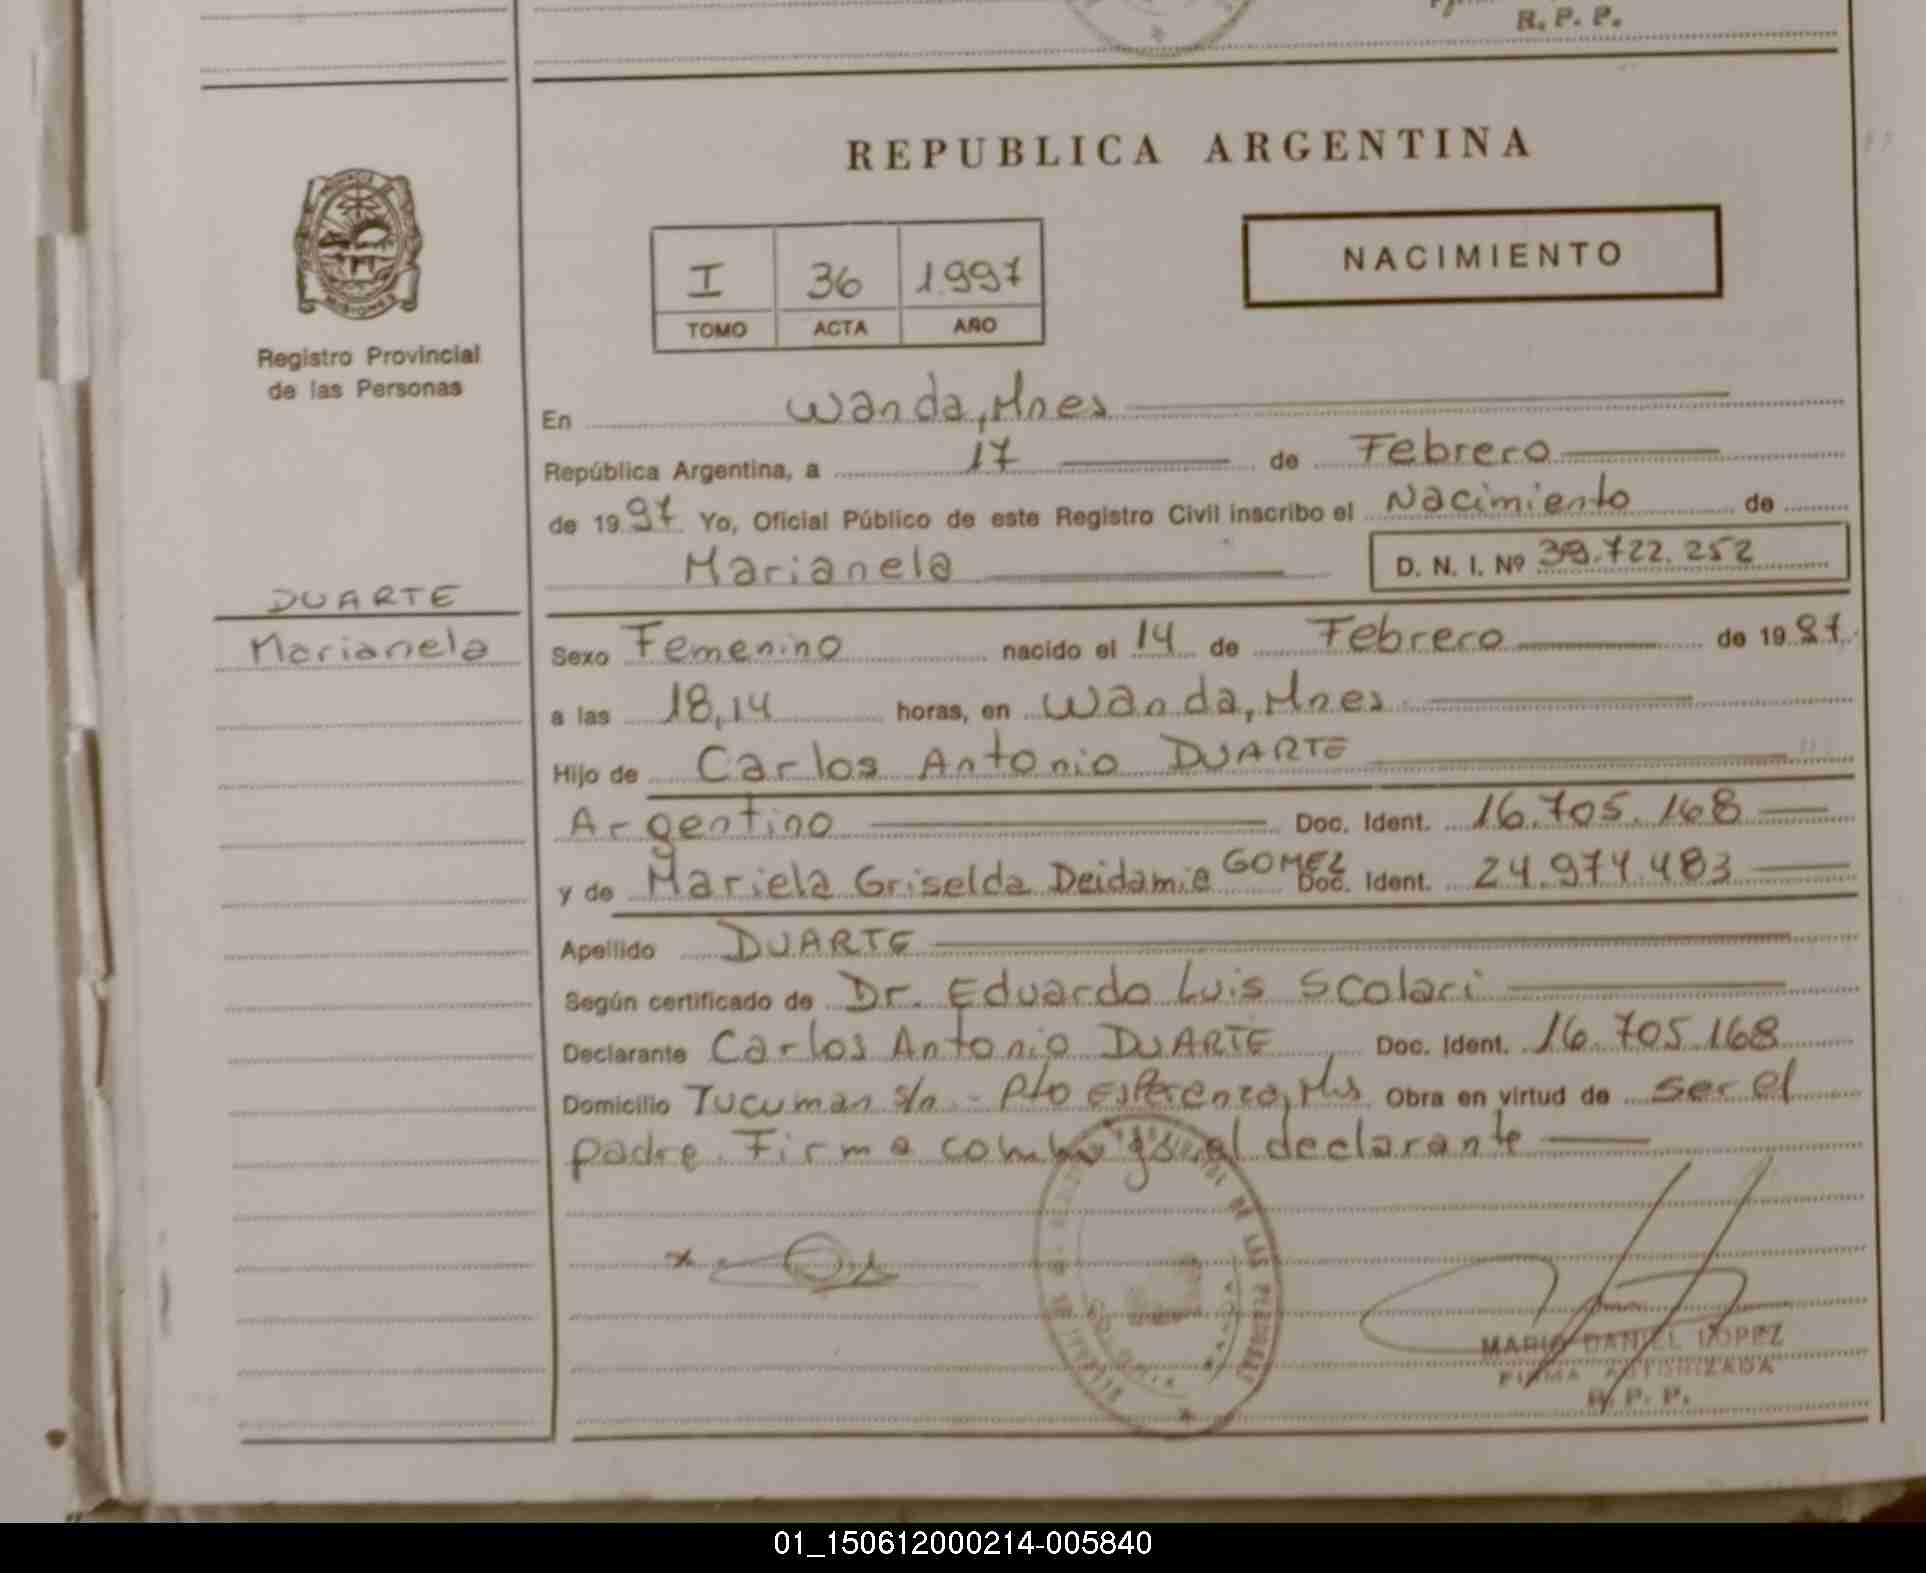 R. P. P.
REPUBLICA ARGENTINA
I 36 1997
TOMO ACTA AÑO
NACIMIENTO
Registro Provincial
de las Personas
En Wanda, Mnes
República Argentina, a 17 de Febrero
de 1997 Yo, Oficial Público de este Registro Civil inscribo el Nacimiento de
Marianela D. N. I. Nº 39.722.252
DUARTE
Marianela
Sexo Femenino nacido el 14 de Febrero de 1997
a las 18,14 horas, en Wanda, Mnes
Hijo de Carlos Antonio DUARTE
Argentino Doc. Ident. 16.705.168
y de Mariela Griselda Deidamia GOMEZ Doc. Ident. 24.974.483
Apellido DUARTE
Según certificado de Dr. Eduardo Luis Scolari
Declarante Carlos Antonio DUARTE Doc. Ident. 16.705.168
Domicilio Tucuman s/n - Pto Esperanza, Mns Obra en virtud de ser el
padre. Firma conmigo el declarante
x
DE LAS PERSONAS
MARIO DANIEL LOPEZ
FIRMA AUTORIZADA
R. P. P.
01_150612000214-005840